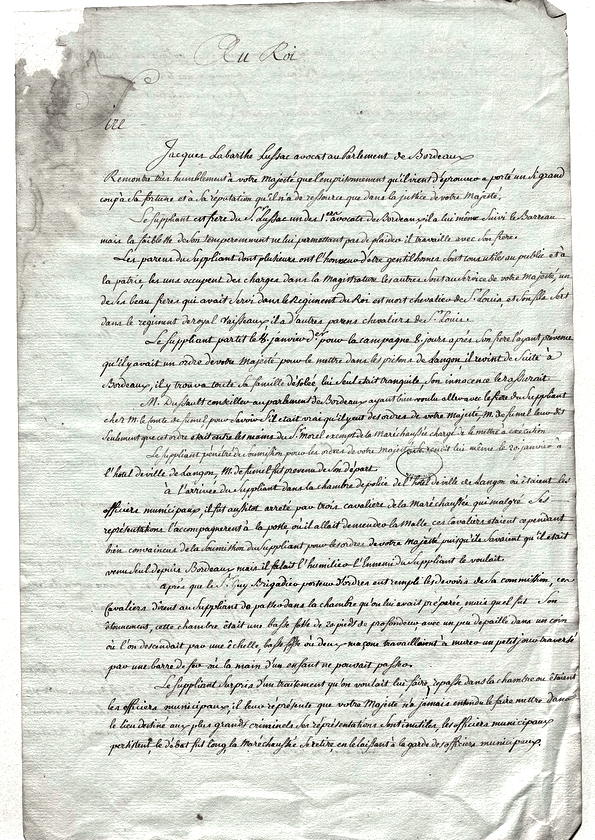 Au Roi
ire
Jacques Labarthe Lussac avocat au Parlement de Bordeaux
Remontre très humblement à votre Majesté que l'emprisonnement qu'il vient d'éprouver a porté un si grand
coup à sa fortune et à sa réputation qu'il n'a de ressource que dans la justice de votre Majesté.
Le suppliant est frere du Sr. Lussac un des 1ers avocats de Bordeaux, il a lui même suivi le Barreau
mais la faiblesse de son temperemment ne lui permettant pas de plaider il travaille avec son frere.
Les parens du Suppliant dont plusieurs ont l'honneur d'être gentilhomes sont tous utiles au public et à
la patrie les uns occupent des charges dans la Magistrature les autres sont au service de votre Majesté, un
de ses beau freres qui avait servi dans le Regiment du Roi est mort chevalier de St. Louis, et son fils sert
dans le regiment de royal Vaisseau, il a d'autres parens chevaliers de St. Louis.
Le suppliant partit le 8. janvier der. pour la campagne 8. jours après son frere l'ayant prévenu
qu'il y avait un ordre de votre Majesté pour le mettre dans les prisons de Langon, il revint de suite à
Bordeaux, il y trouva toute sa famille désolée, lui seul était tranquile son innocence le rassurait.
M. Dussault conseiller au parlement de Bordeaux ayant bien voulu aller avec le frere du Suppliant
cher M. le comte de fumel pour savoir s'il était vrai qu'il y eut des ordres de votre Majesté, M. de fumel leur dit
seulement que cet ordre était entre les mains du Sr. Morel exempt de la Maréchaussée chargé de le mettre à exécution
Le suppliant penetré de soumission pour les ordres de votre Majesté se rendit lui même le 20. janvier à
l'hotel de ville de Langon, M. de fumel fut prevenu de son départ.
à l'arrivée du Suppliant dans la chambre de police de l'hotel de ville de Langon où étaient les
officiers municipaux, il fut aussitot arreté par trois cavaliers de la Maréchaussée qui malgré ses
représentations l'accompagnerent à la poste où il allait demander la Malle, ces Cavaliers etaient cependant
bien convaincus de la soumission du Suppliant pour les ordres de votre Majesté puisqu'ils savaient qu'il était
venu seul depuis Bordeaux mais il falait l'humilier l'Ennemi du Suppliant le voulait.
Après que le Sr. Guy Brigadier porteur d'ordres eut rempli les devoirs de sa commission, ces
Cavaliers dirent au Suppliant de passer dans la chambre qu'on lui avait préparée, mais quel fut son
étonnement, cette chambre etait une basse fosse de 20 pieds de profondeur avec un peu de paille dans un coin
où l'on descendait par une échelle, basse fosse où deux maçons travaillaient à murer un petit jour traversé
par une barre de fer où la main d'un enfant ne pouvait passer.
Le suppliant surpris d'un traitement qu'on voulait lui faire, repasse dans la chambre où étaient
les officiers municipaux; il leur représente que votre Majesté n'a jamais entendu le faire mettre dans
le lieu destiné aux plus grands criminels ses représentations sont inutiles, les officiers municipaux
persistent, le débat fut long, la Marechaussée se retire, en le laissant à la garde des officiers municipaux,